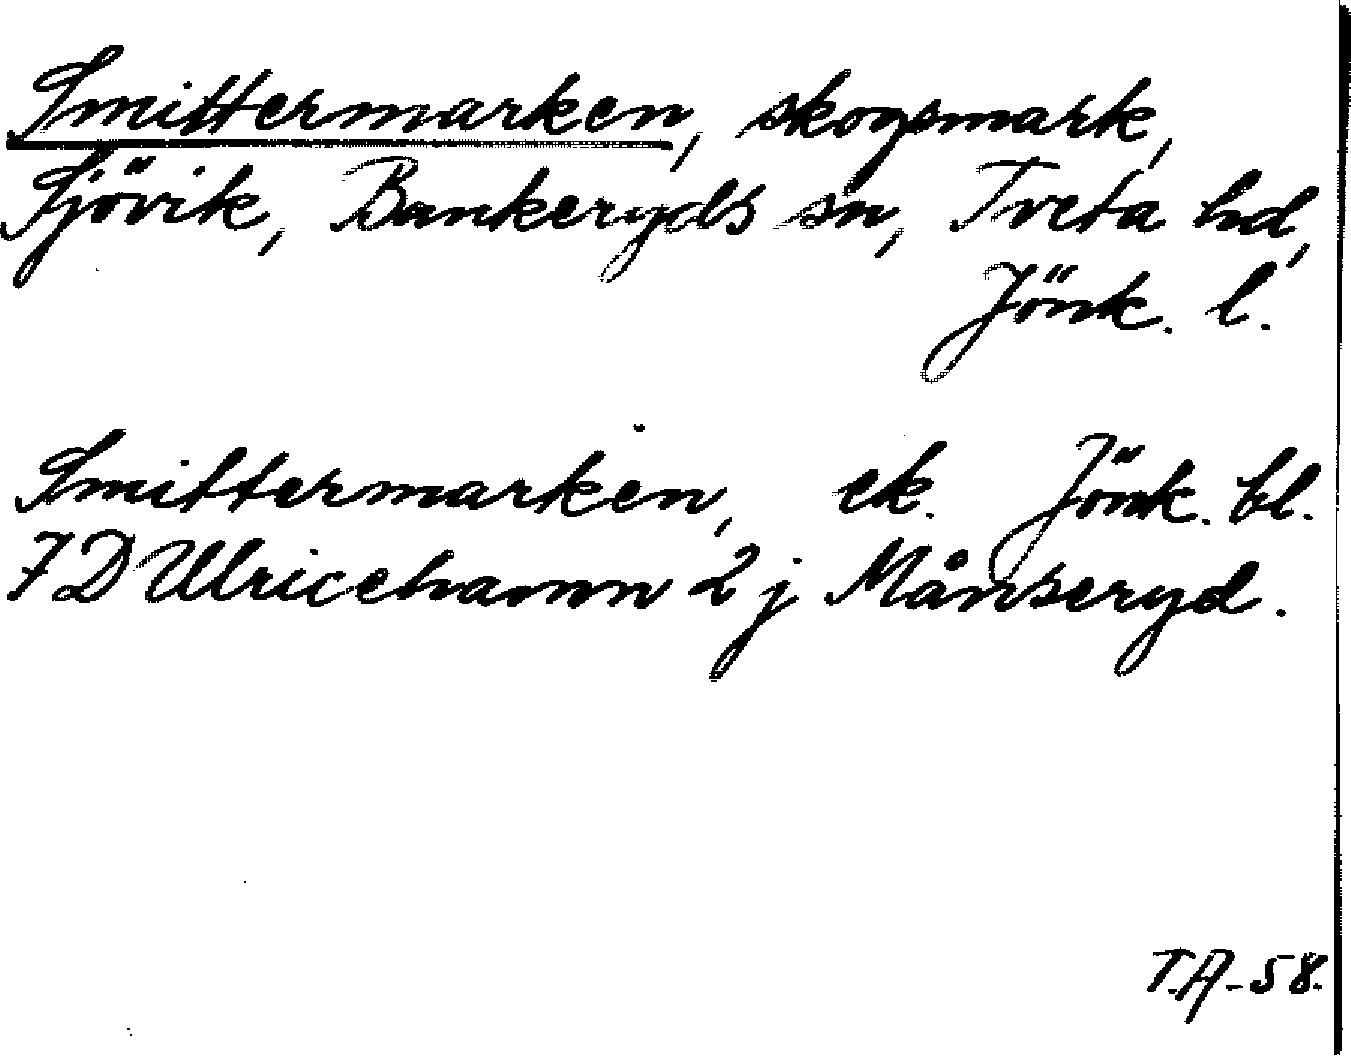 Smittermarken, skogsmark,
Sjövik, Bankeryds sn, Tveta hd,
Jönk. l.
Smittermarken, ek. Jönk. bl.
7D Ulricehamn 2 j Månseryd.
T.A-58.